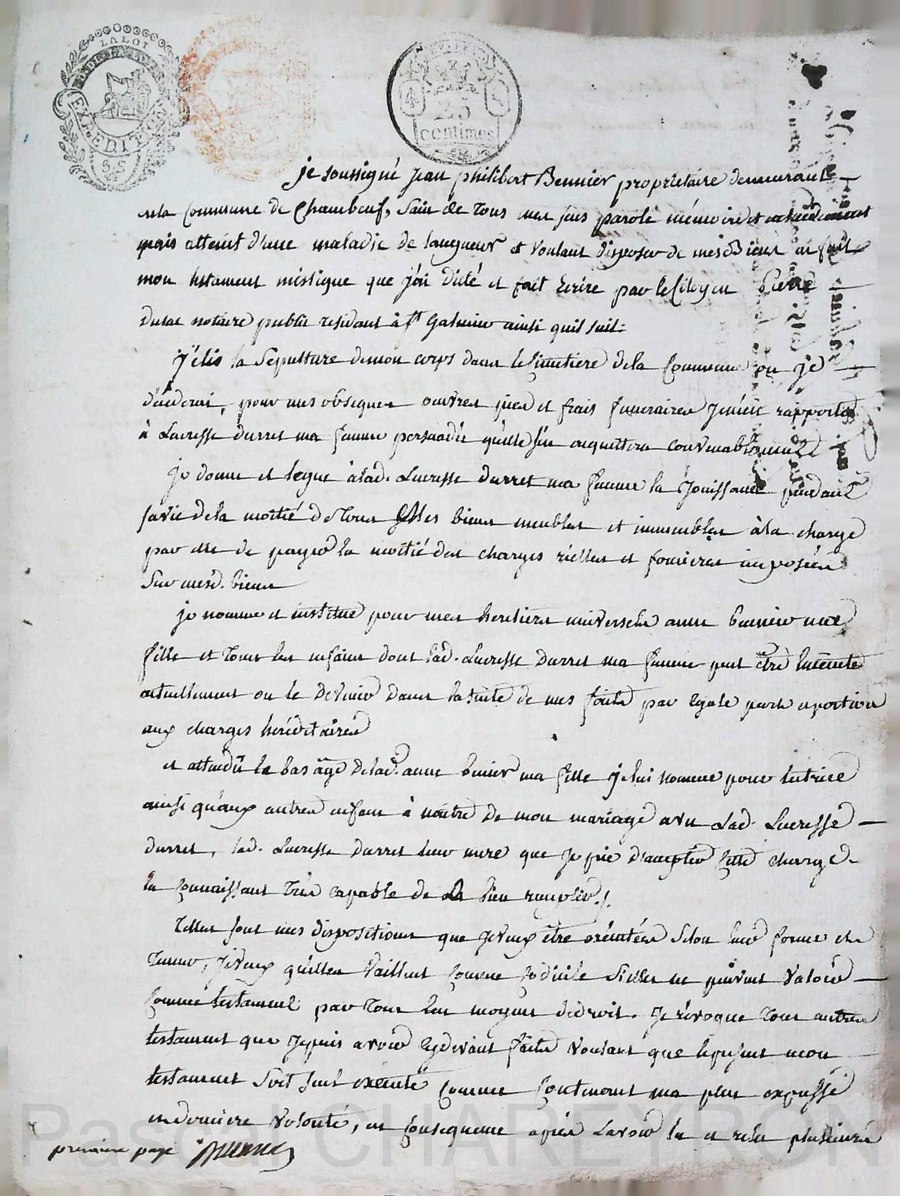 LA LOI
EXPEDITION
25
centimes
je soussigné Jean philibert Bennier proprietaire demeurant
en la Commune de Chambeuf, Sain de Tous mes sens parole mémoire et entendement
mais atteint d'une maladie de langueur et voulant disposer de mes Biens ai fait
mon testament mistique que j'ai dicté et fait Ecrire par le Citoyen Pierre
Dulac notaire public residant à St Galmier ainsi quil suit:
j'élis la Sépulture de mon corps dans le Cimitiere de la Commune ou je
decederai, pour mes obseques œuvres pies et frais funeraires je m'en rapporte
à Lucresse durret ma femme persuadé qu'elle s'en acquittera convenablement
je donne et legue à lad. Lucresse durret ma femme la jouissance pendant
sa vie de la moitié de Tous mes biens meubles et immeubles à la charge
par elle de payer la moitié des charges réelles et foncieres imposées
Sur mesd. biens
je nomme et institue pour mes heritiers universels anne bennier ma
fille et Tous les enfans dont lad. Lucresse Durret ma femme peut être enceinte
actuellement ou le devenir dans la suite de mes faits par egale part et portion
aux charges héréditaires
et attendû le bas âge de lad. anne benier ma fille je lui nomme pour tutrice
ainsi qu'aux autres enfans à naitre de mon mariage avec Lad. Lucresse
durret, lad. Lucresse durret leur mere que je prie d'accepter cette charge
la connaissant Très capable de la bien remplir.
Telles sont mes dispositions que je veux être exécutées Selon leur forme et
Teneur, je veux qu'elles vaillent comme codicile Si elles ne peuvent valoir
comme testament par Tous les moyens de droit. je révoque Tous autres
testament que je puis avoir cydevant faits voulant que le présent mon
testament Soit Seul exécuté comme contenant ma plus expresse
et derniere volonté, en consequence après l'avoir lu et relu plusieurs
premiere page
Pascal CHAREYRON